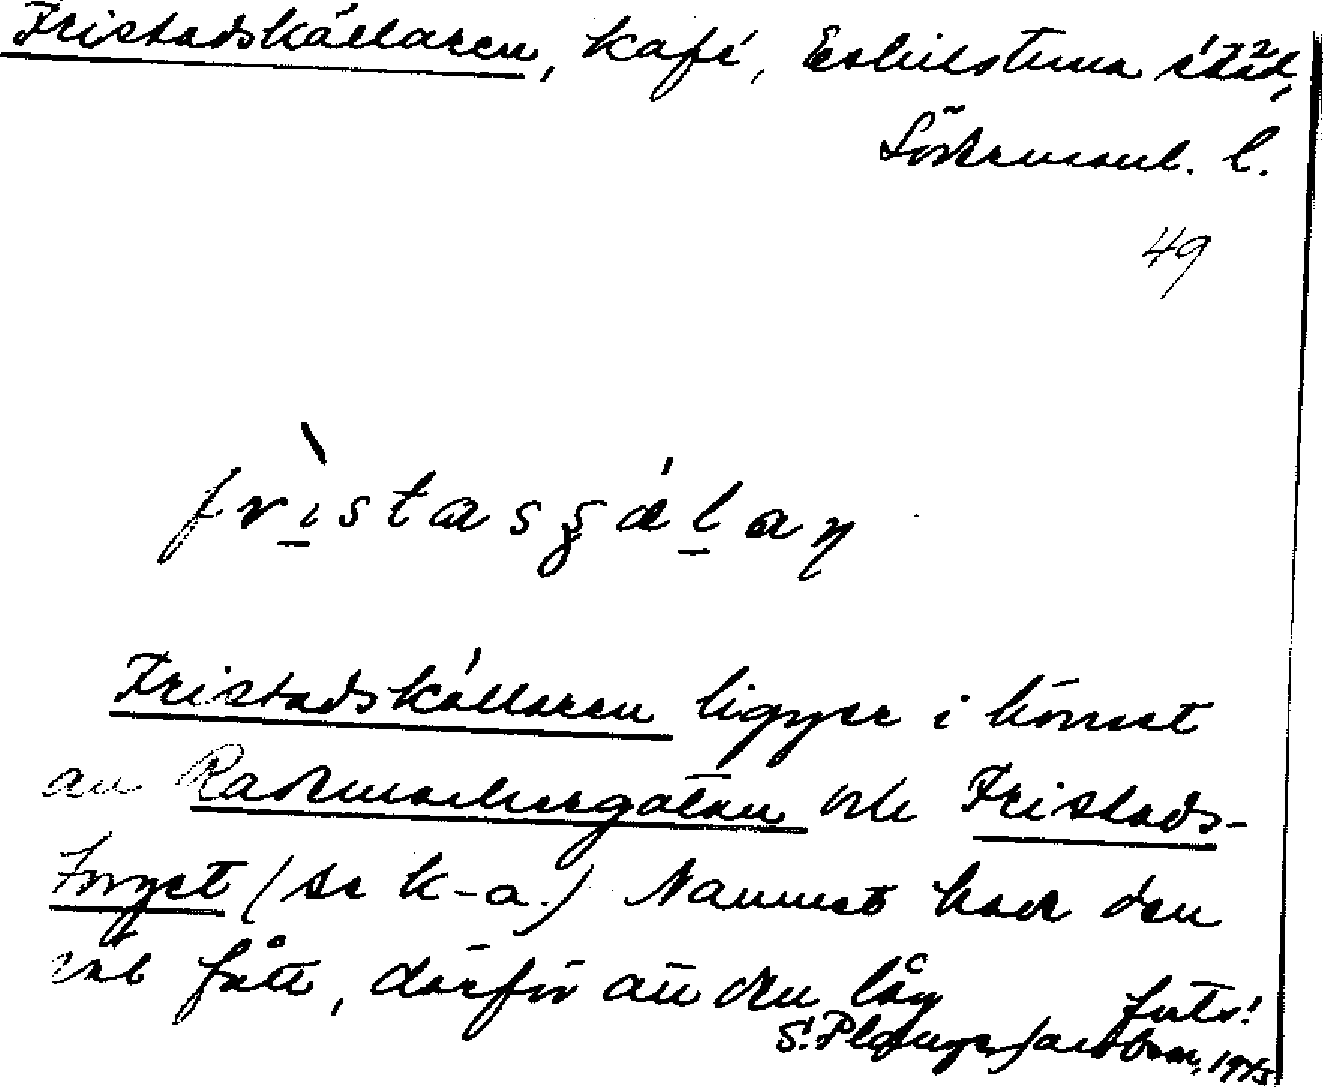 Fristadskällaren, kafé, Eskilstuna stad,
Södermanl. l.
49
fristasçälaɳ
Fristadskällaren ligger i hörnet
av Rademachergatan och Fristads-
torget (se k-a.) Namnet har den
väl fått, därför att den låg
forts!
S. Jacobson, 1975